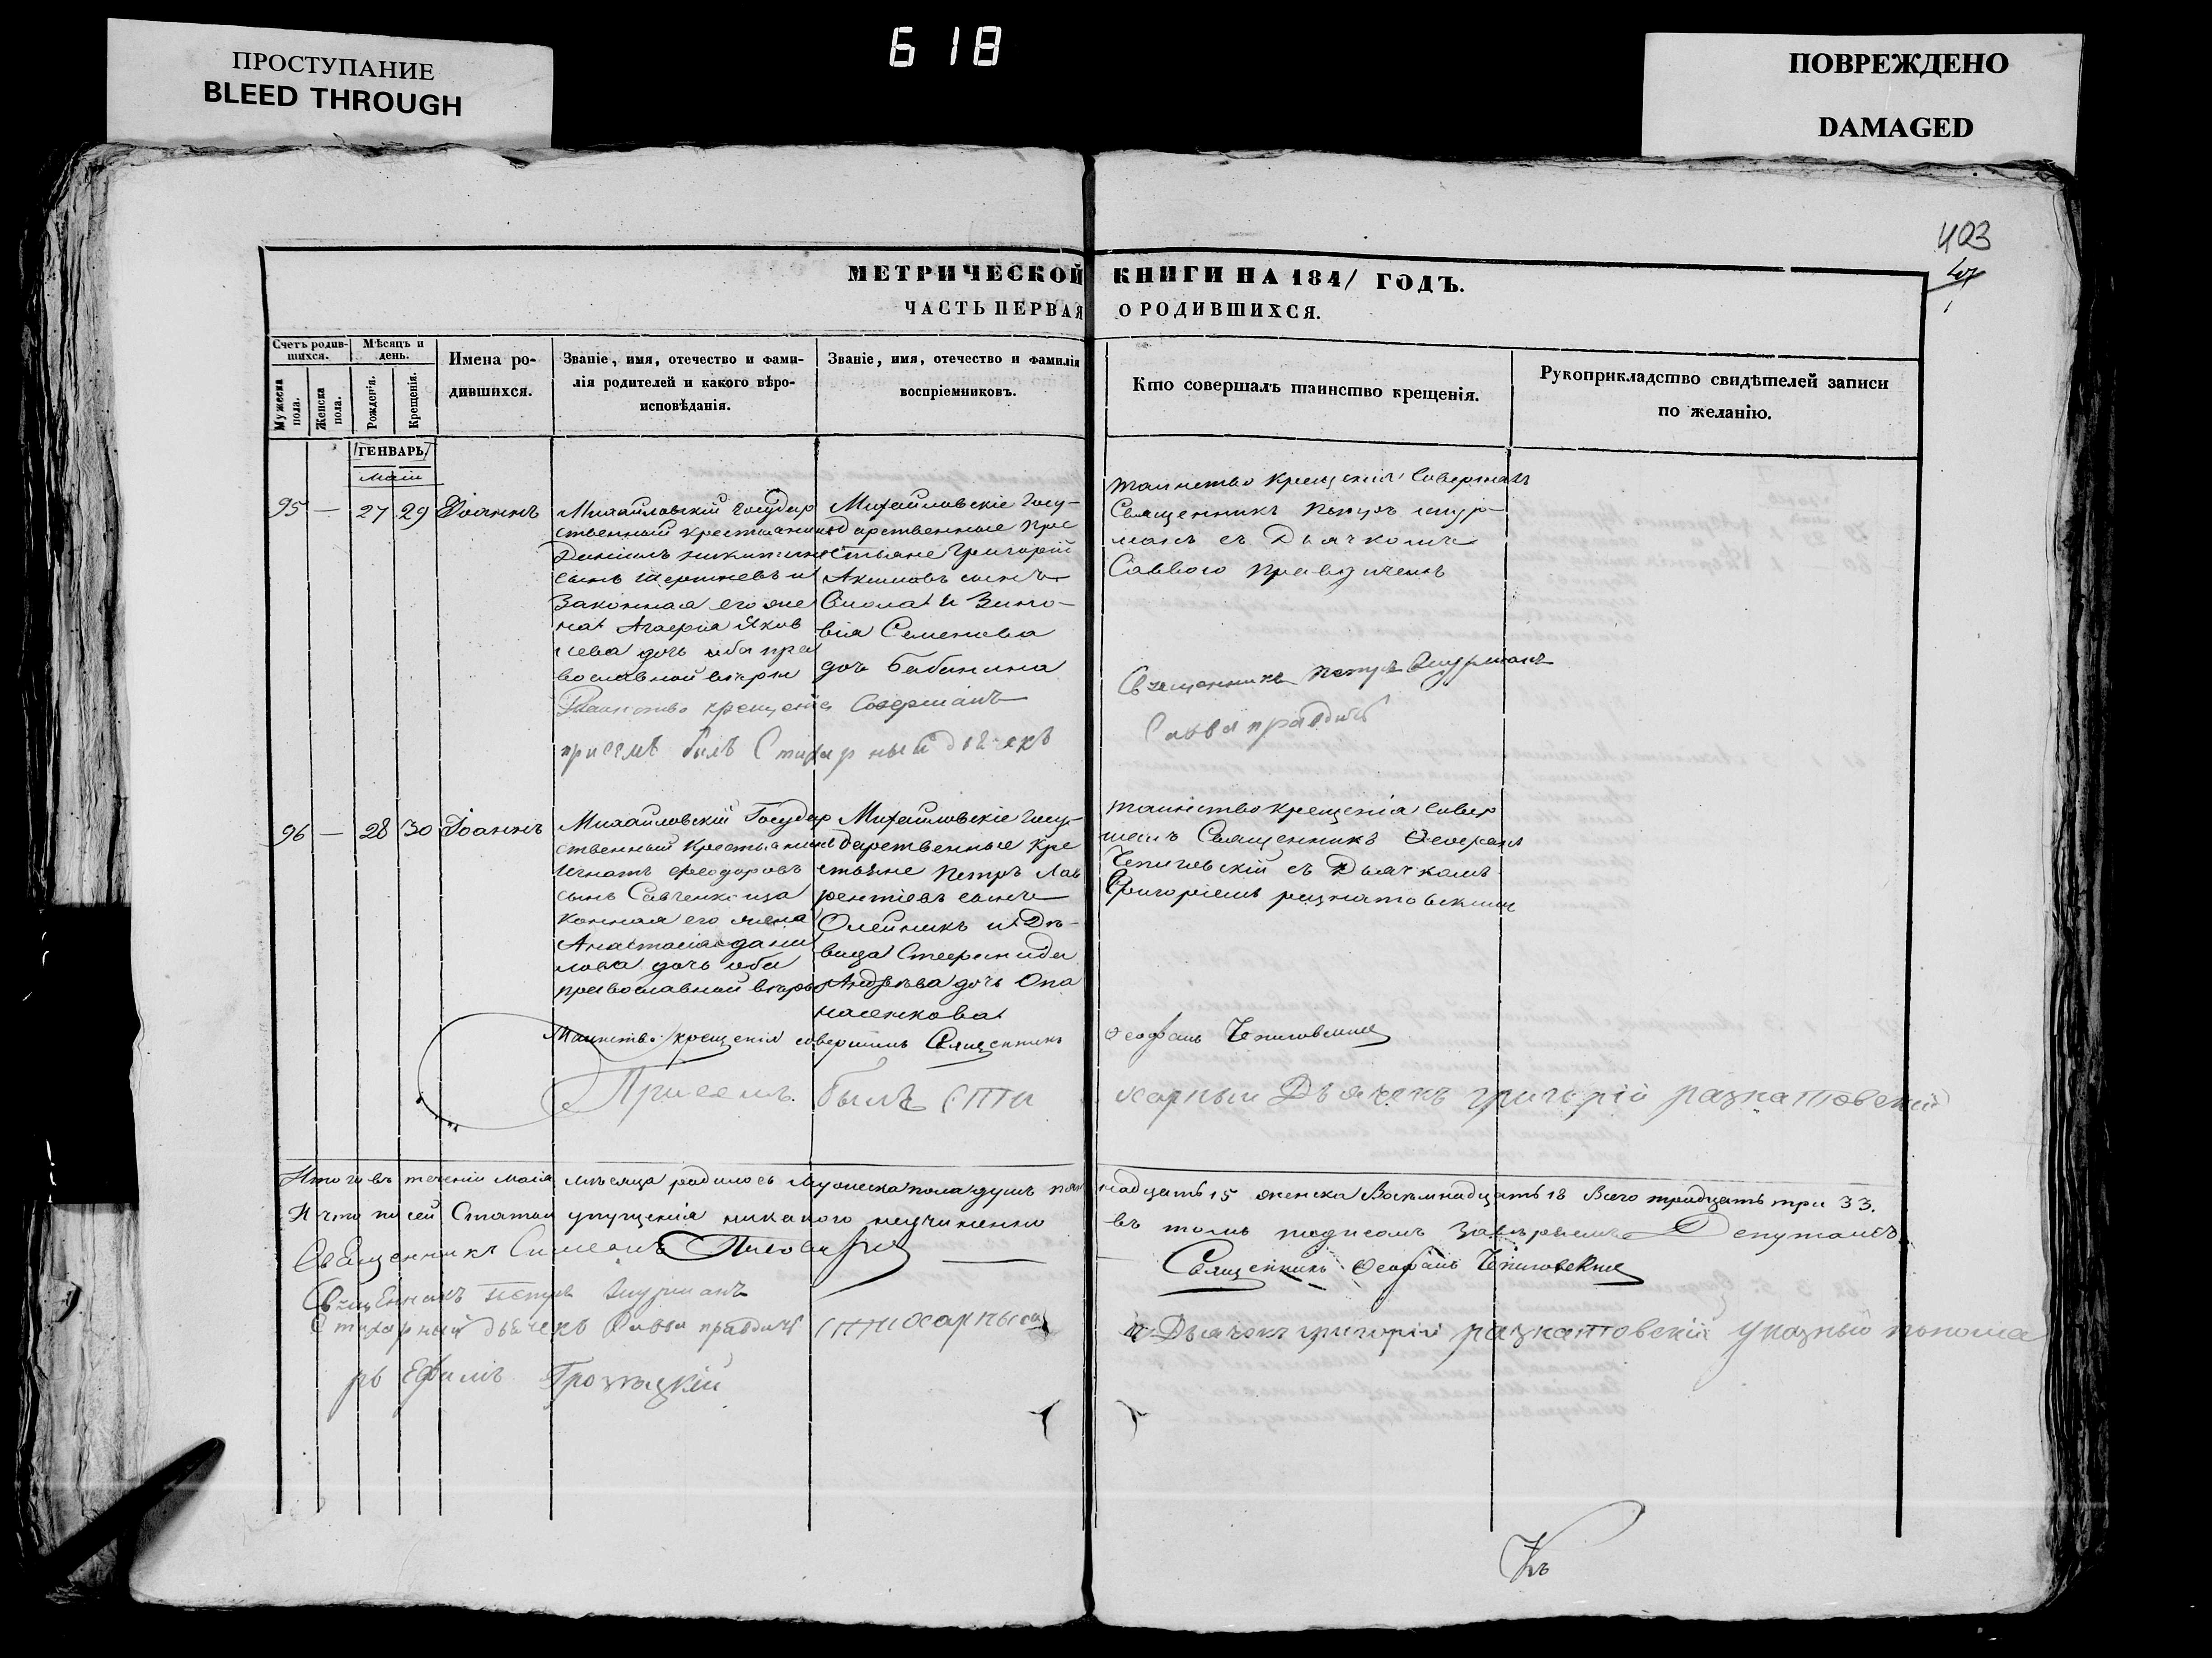 ПРОСТУПАНИЕ
BLEED THROUGH
618
ПОВРЕЖДЕНО
DAMAGED
403
МЕТРИЧЕСКОЙ КНИГИ НА 1841 ГОДЪ.
ЧАСТЬ ПЕРВАЯ О РОДИВШИХСЯ.
Счетъ родив-
шихся.
Мужеска пола.
Женска пола.
Мѣсяцъ и
день.
Рожденія.
Крещенія.
Имена ро-
дившихся.
Званіе, имя, отечество и фами-
лія родителей и какого вѣро-
исповѣданія.
Званіе, имя, отечество и фамилія
воспріемниковъ.
Кто совершалъ таинство крещенія.
Рукоприкладство свидѣтелей записи
по желанію.
ГЕНВАРЬ
Маій
95 — 27 29 Іоаннъ
Михайловскій государ
ственный крестьянинъ
Даніилъ Никитинъ
сынъ и
Законная его же
на Агафія Яков
лева дочь оба пра
вославной вѣры
Михайловскіе Госу-
дарственные кре
стьяне Григорій
Акимовъ сынъ
и Зино-
вія Семенова
дочь Бабанина
Таинство крещенія Совершалъ
Священникъ Петръ Шур-
манъ съ Дьячкомъ
Саввою
Таинство крещенія Совершалъ
Священникъ Петръ Шурманъ
присемъ былъ Стихарный дьячекъ
Савва правдичъ
96 — 28 30 Іоаннъ
Михайловскій Государ
ственный Крестьянинъ
Игнатъ Феодоровъ
сынъ Савченко и за
конная его жена
Анастасія Дани
лова дочь оба
православной вѣры
Михайловскіе Госу-
дарственные кре
стьяне Петръ Лав
рентіевъ сынъ
Олейникъ и Дѣ-
вица Стефанида
Андреева дочь Опа
насенкова
таинство крещенія Совер
шалъ Священникъ Феофанъ
Чепиговскій съ Дьячкомъ
Григоріемъ рознатовскимъ
Таинство крещенія совершилъ Священникъ
Феофанъ Чепиговскій
Присемъ былъ сти
харный Дьячекъ григорій разнатовскій
Итого въ теченіи маія мѣсяца родилось Мужеска пола душъ пят
надцать 15 женска Восѣмнадцать 18 Всего тридцать три 33.
И что по сей Статьи упущенія никакого неучиненно
въ томъ подписомъ Завѣряемъ Депутатъ
Священникъ Симеонъ
Священникъ Феофанъ Чепиговскій
Священникъ Петръ Шурманъ
Стихарный дьячекъ Савва правдичъ стихарный
Дьячокъ григорій разнатовскій указный понома
рь Ефимъ
Къ